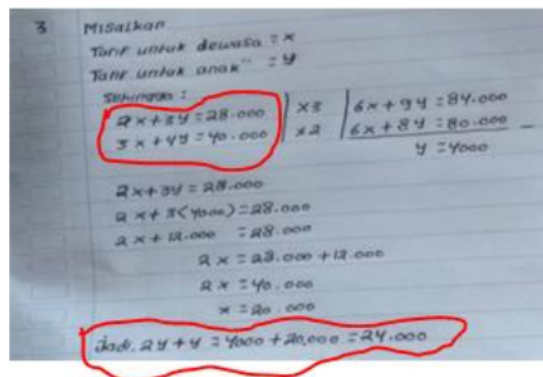 3 Misalkan
Tarif untuk dewasa = x
Tarif untuk anak" = y
Sehingga :
2x + 3y = 28.000 | x3 | 6x + 9y = 84.000
3x + 4y = 40.000 | x2 | 6x + 8y = 80.000 -
y = 4000
2x + 3y = 28.000
2x + 3(4000) = 28.000
2x + 12.000 = 28.000
2x = 28.000 + 12.000
2x = 40.000
x = 20.000
Jadi, 2y + y = 4000 + 20,000 = 24.000